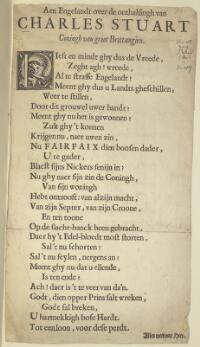 Aen Engelandt over de onthalsingh van
CHARLES STUART
Coningh van groot Brittangien.
Iest en minde ghy dus de Vreede,
Zeght agh! wreede,
Al te straffe Engelandt?
Meent ghy dus u Landts gheschillen,
Weer te stillen,
Door dit grouwel uwer handt?
Meent ghy nu het is gewonnen?
Zult ghy 't konnen
Krijgen nu, naer uwen zin,
Nu FAIRFAIX dien boosen dader,
U te gader,
Blaest sijns Nickers senijn in?
Nu ghy naer sijn zin de Coningh,
Van sijn woningh
Hebt ontrooft: van al zijn macht,
Van zijn Septer, van zijn Croone,
En ten toone
Op de slacht-banck heen gebracht,
Daer hy 't Edel-bloedt most storten,
Sal 't nu schorten?
Sal 't nu feylen, nergens an?
Meent ghy nu dat u ellende,
Is ten ende?
Ach! daer is 't te veer van da'n.
Godt, dien opper Prins sal wreken,
Godt sal breken,
U hartneckigh bose Hardt.
Tot een loon, voor dese perdt.